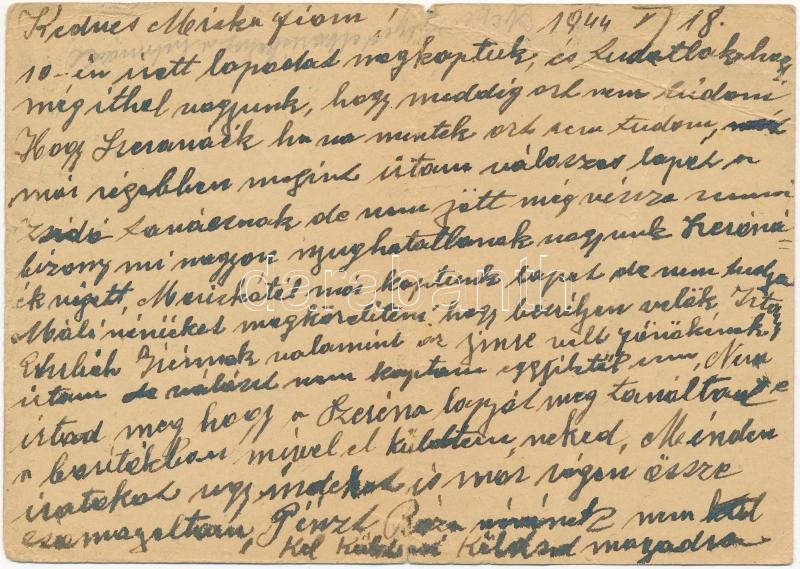 Kedves Miska fiam! 1944 V/18.
10-én irott lapodat megkaptuk, és tudatlak hogy
még itthel vagyunk, hogy meddig azt nem tudom
Hogy Szerénáék ha va mentek azt sem tudom,
már régebben megint irtam válaszos lapot a
Zsidó tanácsnak de nem jött még vissza semmi
bizony mi nagyon nyughatatlanok vagyunk Szeréná
ék végett, Mariskától már kaptunk lapot de nem tudja
Máli nénéket megkérdeztem hogy beszéljen velök Irtam
Irénnek valamint az Imre volt főnökének
irtam de választ nem kaptam egyiktől sem, Nem
irtad meg hogy a Szeréna lapját meg találtad e
a boritékban mivel el küldtem neked, Minden
iratokat is már régen össze
csomagoltam, Pénzt Róza nénének nem
Kel Küldeni Költsed magadra
darabanth